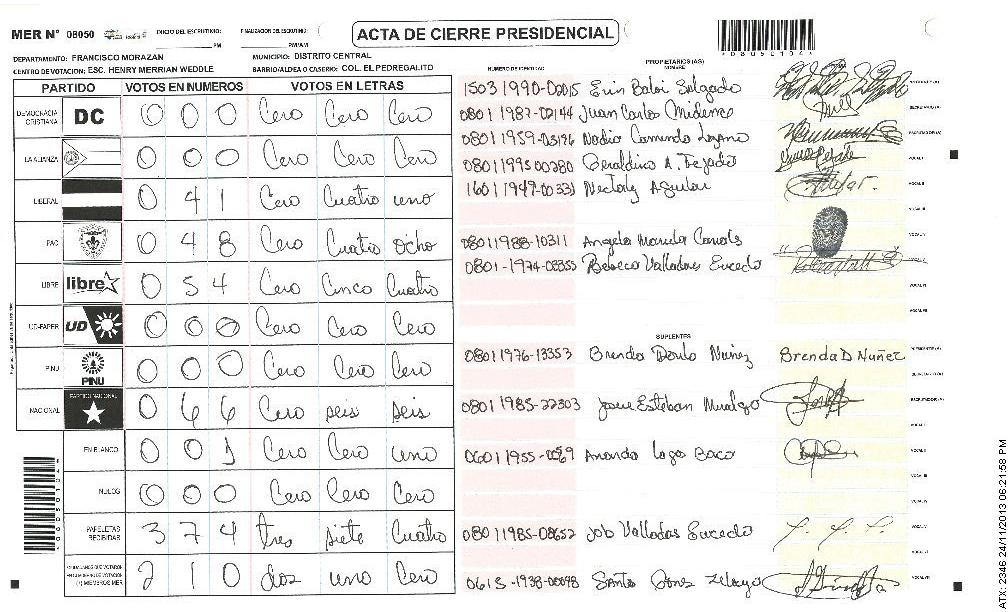 MER N° 08050 INICIO DEL ESCRUTINIO: PM FINALIZACION ESCRUTINIO: PM/AM
ACTA DE CIERRE PRESIDENCIAL
DEPARTAMENTO: FRANCISCO MORAZAN MUNICIPIO: DISTRITO CENTRAL
CENTRO DE VOTACION: ESC. HENRY MERRIAN WEDDLE BARRIO/ALDEA O CASERIO: COL. EL PEDREGALITO
PARTIDO VOTOS EN NUMEROS VOTOS EN LETRAS
DEMOCRACIA CRISTIANA DC 0 0 0 Cero Cero Cero
LA ALIANZA 0 0 0 Cero Cero Cero
LIBERAL 0 4 1 Cero Cuatro uno
PAC 0 4 8 Cero Cuatro ocho
LIBRE libre 0 5 4 Cero Cinco Cuatro
UD-FAPER UD 0 0 0 Cero Cero Cero
PINU PINU 0 0 0 Cero Cero Cero
NACIONAL PARTIDO NACIONAL 0 6 6 Cero seis seis
EN BLANCO 0 0 1 Cero Cero uno
NULOS 0 0 0 Cero Cero Cero
PAPELETAS RECIBIDAS 3 7 4 tres siete Cuatro
CIUDADANOS QUE VOTARON EN CUADERNO DE VOTACION (+) MIEMBROS MER 2 1 0 dos uno Cero
NUMERO DE IDENTIDAD PROPIETARIOS (AS) NOMBRE
1503 1990-00015 Erin Salgado
0801 1987-00144 Juan Carlos
0801 1959-03196 Nadia
0801 1995 00280 Geraldina A. Tejada
1601 1949-00331 Aguilar
0801 1988-10311 Angela
0801-1974-08355 Rebeca Valladares Eucedo
SUPLENTES
0801 1976-13353 Brenda Nuñez Brenda D Nuñez
0801 1985-22303 Josue Esteban
0601 1955-0069
0801 1985-08652 Job Eucedo
0615-1938-00098 Santo
ATX-2346 24/11/2013 06:21:58 PM